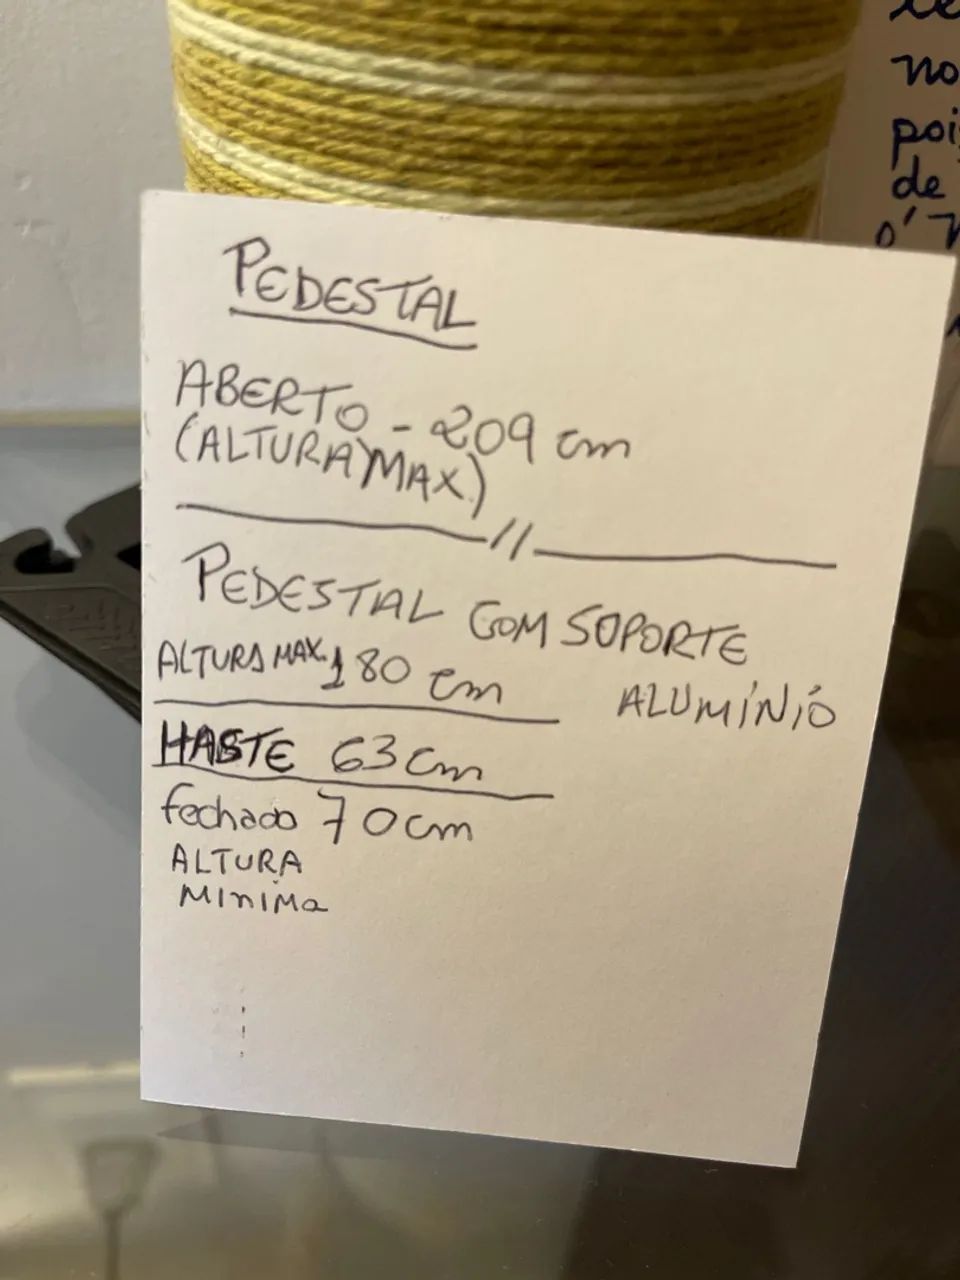 PEDESTAL
ABERTO - 209 cm
(ALTURA MAX.)
//
PEDESTAL COM SOPORTE
ALUMÍNIO
ALTURA MAX. 180 cm
HASTE 63 cm
fechado 70 cm
ALTURA
MINIMA
no
de